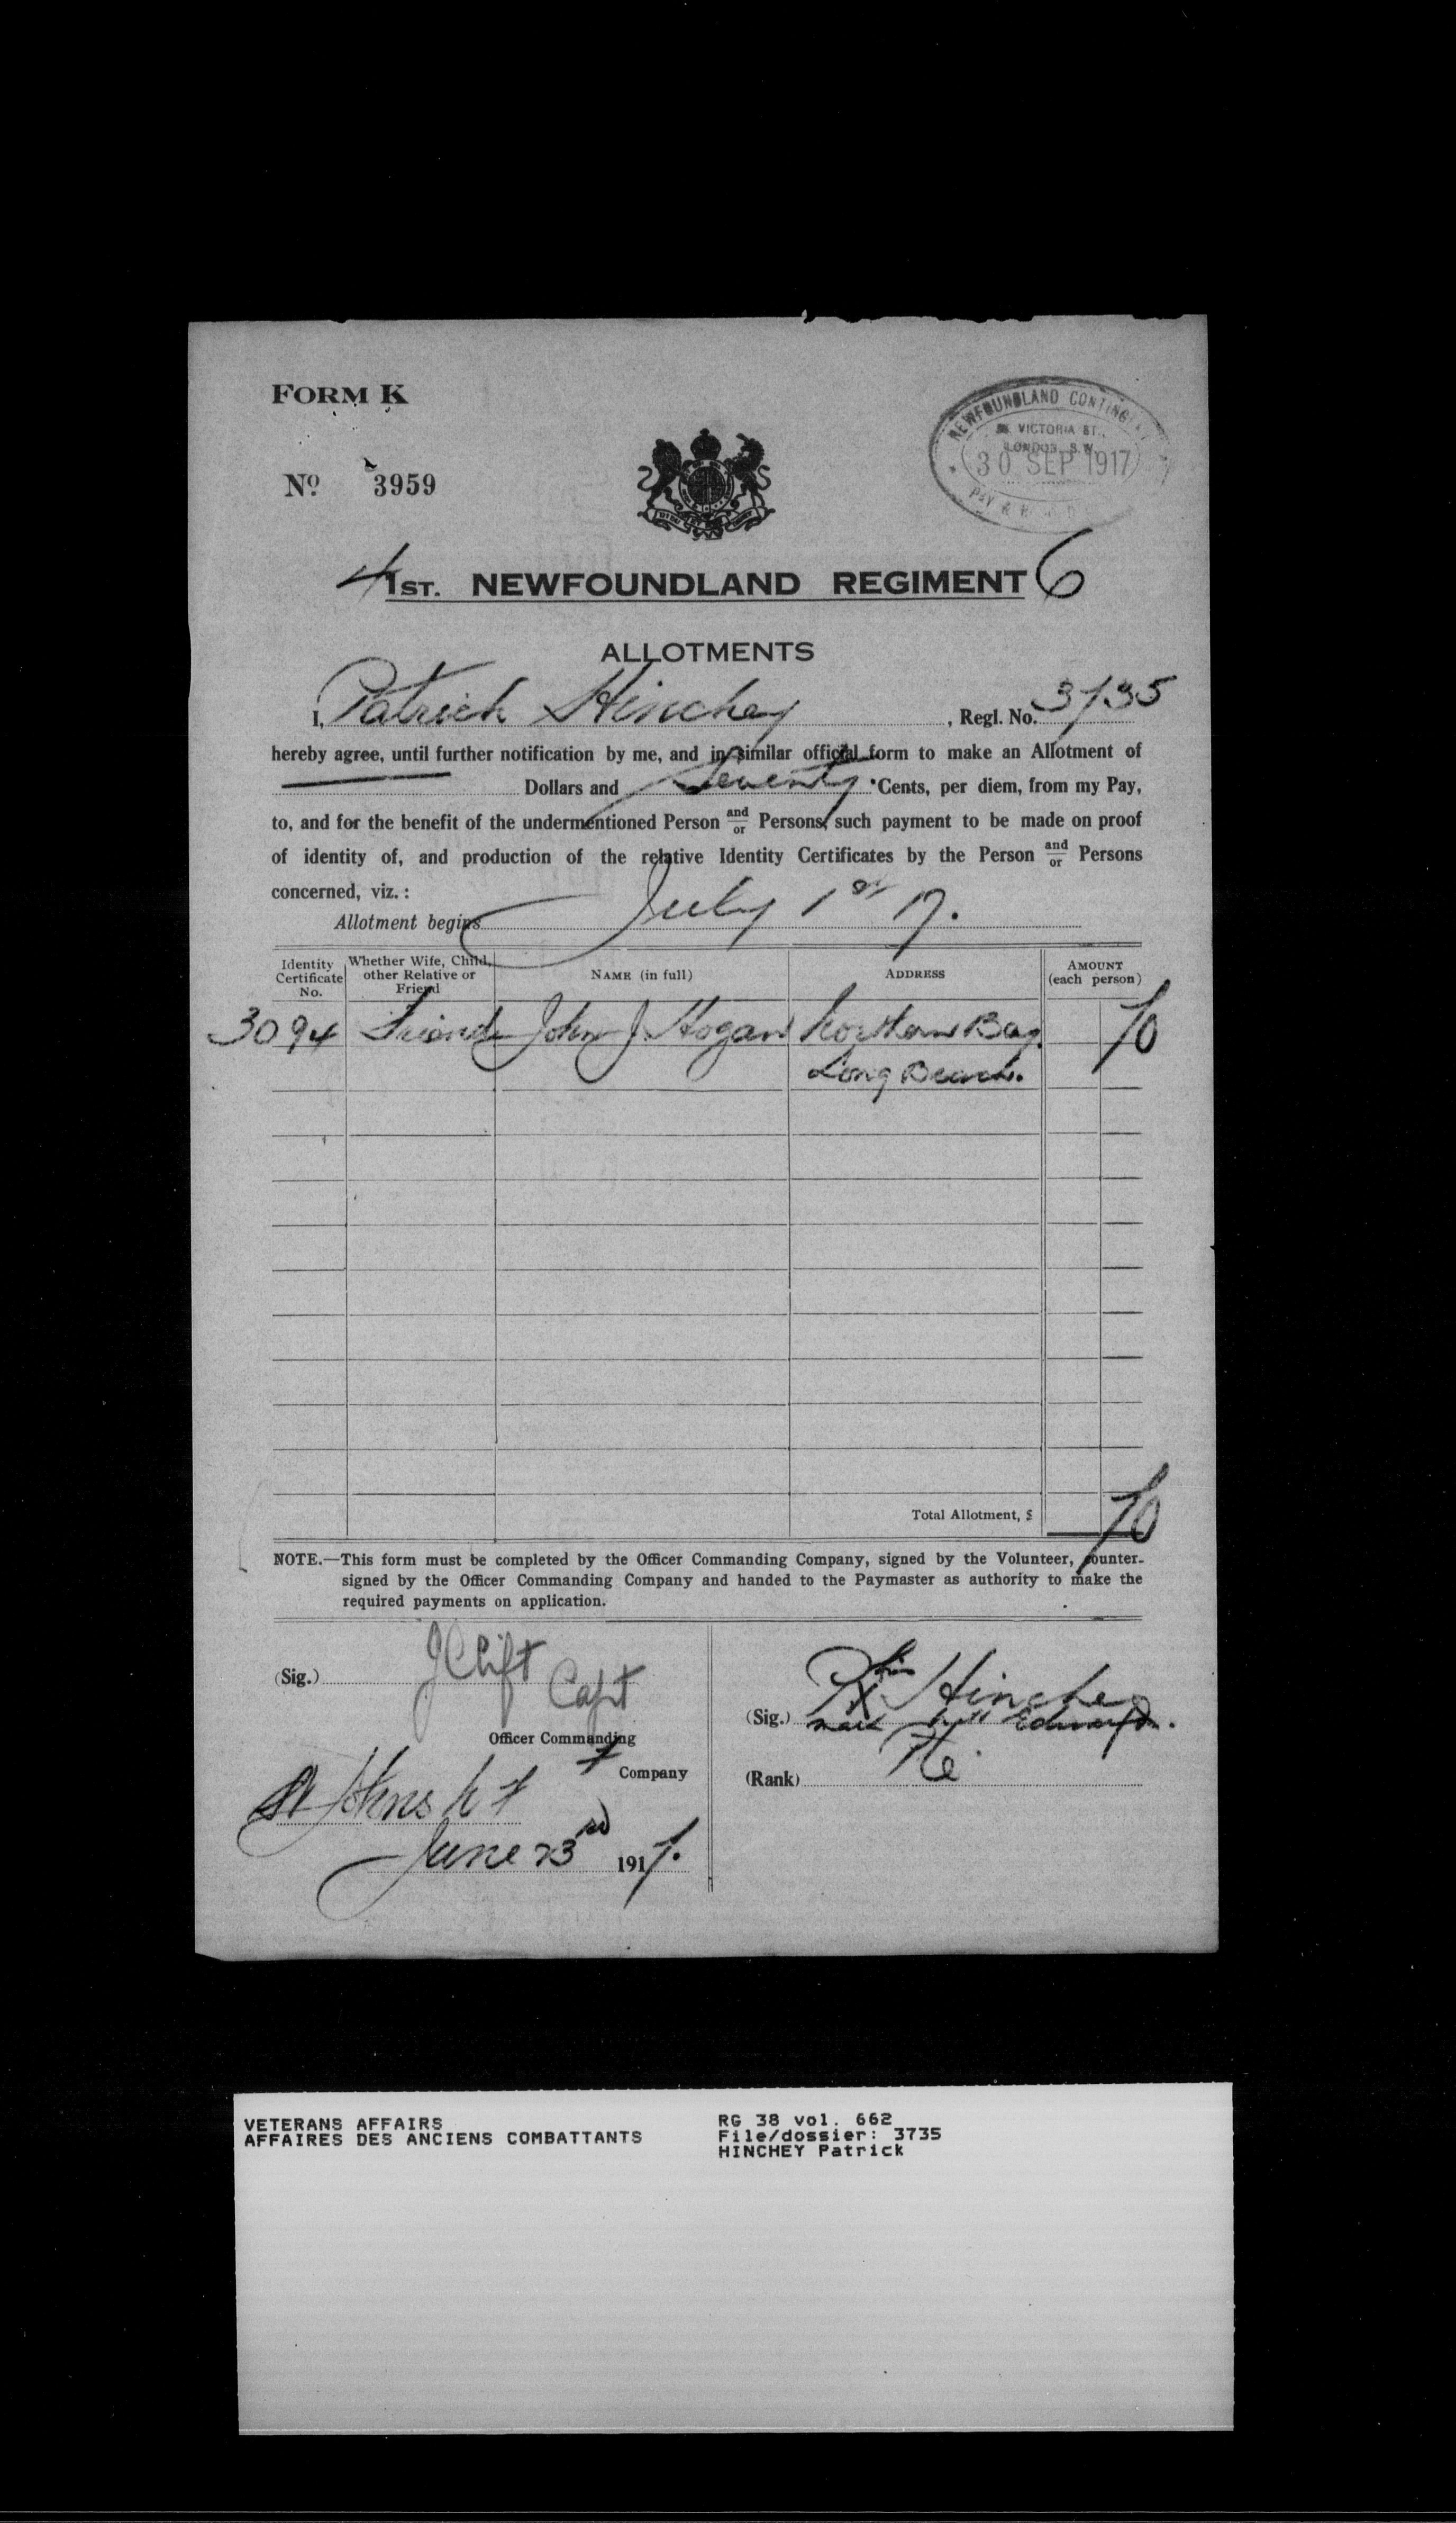 FORM K
NEWFOUNDLAND CONTINGENT
VICTORIA ST.,
LONDON, S.W.
30 SEP 1917
PAY &
No 3959
4 1ST. NEWFOUNDLAND REGIMENT 6
ALLOTMENTS
I, Patrick Hinchey, Regl. No. 3735
hereby agree, until further notification by me, and in similar official form to make an Allotment of
Dollars and Seventy Cents, per diem, from my Pay,
to, and for the benefit of the undermentioned Person and/or Persons, such payment to be made on proof
of identity of, and production of the relative Identity Certificates by the Person and/or Persons
concerned, viz.:
Allotment begins July 1st 17.
Identity Certificate No. Whether Wife, Child, other Relative or Friend NAME (in full) ADDRESS AMOUNT (each person)
3094 Friend John J. Hogan Northern Bay 70
Long Beach.
Total Allotment, $ 70
NOTE.—This form must be completed by the Officer Commanding Company, signed by the Volunteer, counter-
signed by the Officer Commanding Company and handed to the Paymaster as authority to make the
required payments on application.
(Sig.) J Clift Capt
Officer Commanding
Company
St Johns N F
June 23rd 1917.
(Sig.) P his X Hinchey
mark
(Rank) Pte.
VETERANS AFFAIRS
AFFAIRES DES ANCIENS COMBATTANTS
RG 38 vol. 662
File/dossier: 3735
HINCHEY Patrick